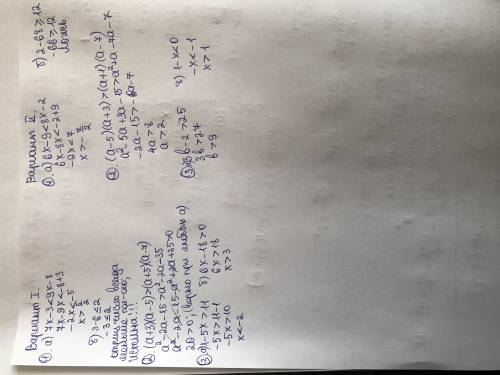 Вариант I.
① а) 7x-3<9x-8
7x-9x<-8+3
-2x<-5
x>5/2
б) 3-6≤2
-3≤2
отриц. число всегда
меньше пол-го,
Истина!!!
② (a+3)(a-5)>(a+5)(a-7)
a²-2a-15>a²-2a-35
a²-2a-15-a²+2a+35>0
20>0; (верно при любом a)
③ а) 1-5x>11
-5x>11-1
-5x>10
x<-2
б) 6x-18>0
6x>18
x>3
Вариант II.
① а) 6x-9<8x-2
6x-8x<-2+9
-2x<7
x>-7/2
б) 2-68≥12
-66≥12
Ложь
② (a-5)(a+3)>(a+1)(a-7)
a²-5a+3a-15>a²+a-7a-7
-2a-15>-6a-7
4a>8
a>2
③ 3b-2>25
3b>27
b>9
б) 1-x<0
-x<-1
x>1